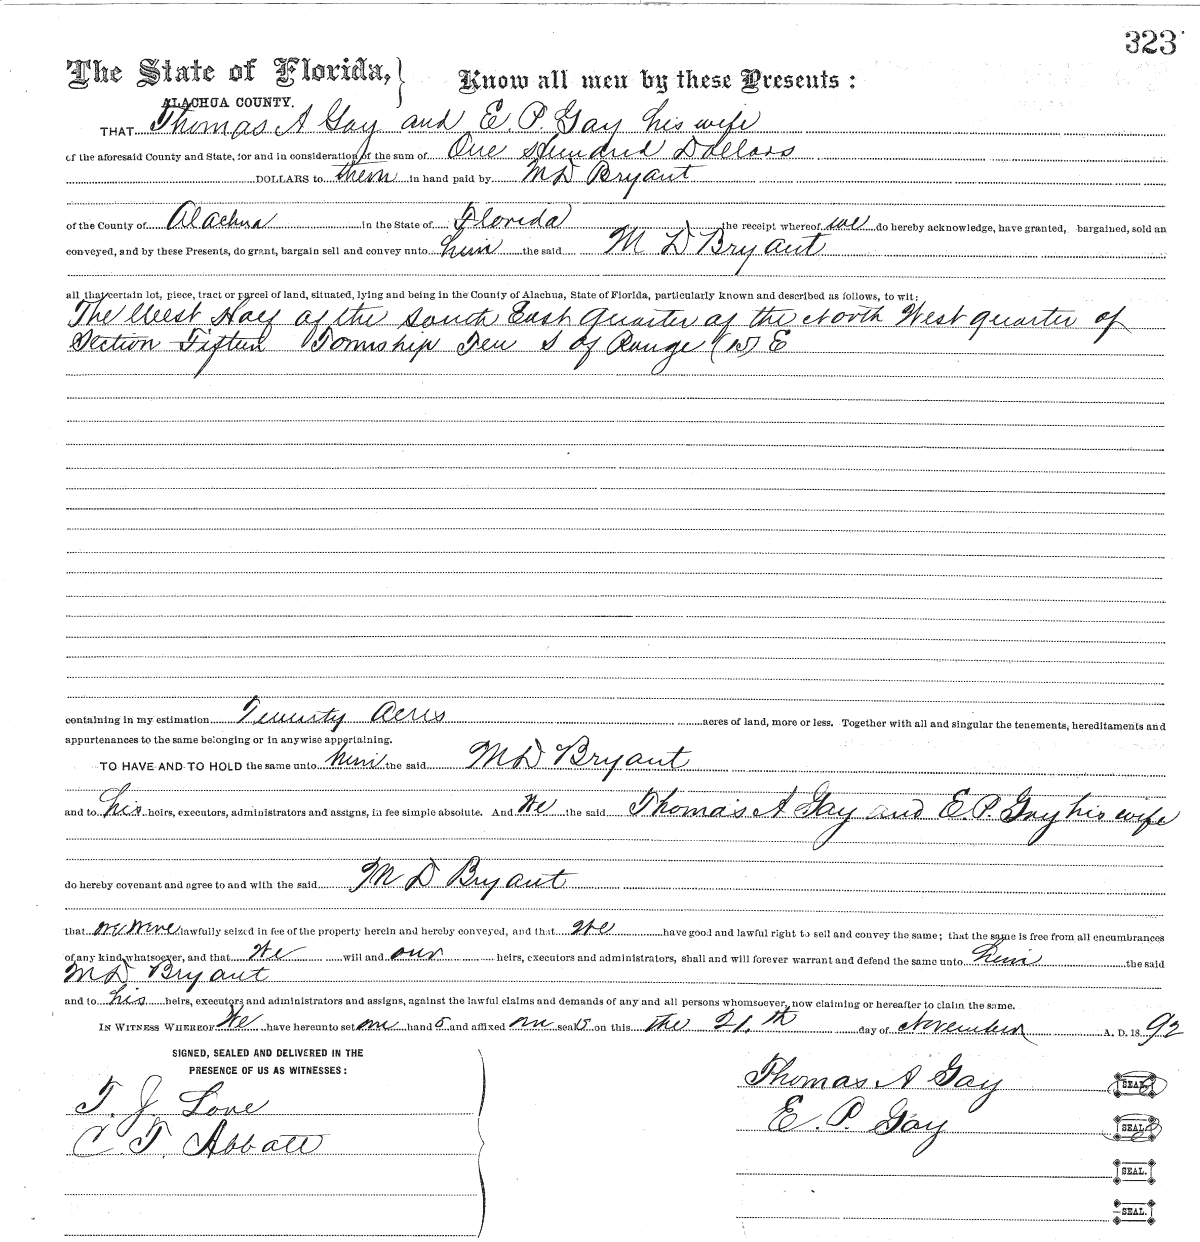 323
The State of Florida, } Know all men by these Presents :
ALACHUA COUNTY.
THAT Thomas A Gay and E. P. Gay his wife
of the aforesaid County and State, for and in consideration of the sum of One Hundred Dollars
DOLLARS to them in hand paid by M D Bryant
of the County of Alachua in the State of Florida the receipt whereof we do hereby acknowledge, have granted, bargained, sold an
conveyed, and by these Presents, do grant, bargain sell and convey unto him the said M D Bryant
all that certain lot, piece, tract or parcel of land, situated, lying and being in the County of Alachua, State of Florida, particularly known and described as follows, to wit:
The West Half of the South East Quarter of the North West quarter of
Section Fifteen Township Ten S of Range (15) E
containing in my estimation Twenty Acres acres of land, more or less. Together with all and singular the tenements, hereditaments and
appurtenances to the same belonging or in anywise appertaining.
TO HAVE AND TO HOLD the same unto him the said M D Bryant
and to his heirs, executors, administrators and assigns, in fee simple absolute. And We the said Thomas A Gay and E. P. Gay his wife
do hereby covenant and agree to and with the said M D Bryant
that we were lawfully seized in fee of the property herein and hereby conveyed, and that We have good and lawful right to sell and convey the same; that the same is free from all encumbrances
of any kind whatsoever, and that We will and our heirs, executors and administrators, shall and will forever warrant and defend the same unto him the said
M D Bryant
and to his heirs, executors and administrators and assigns, against the lawful claims and demands of any and all persons whomsoever, now claiming or hereafter to claim the same.
IN WITNESS WHEREOF We have hereunto set our hand s and affixed our seal s on this the 21.th day of November A. D. 18 92
SIGNED, SEALED AND DELIVERED IN THE
PRESENCE OF US AS WITNESSES:
Thomas A Gay SEAL.
T. J. Love
E. P. Gay SEAL.
C T. Abbott
SEAL.
SEAL.